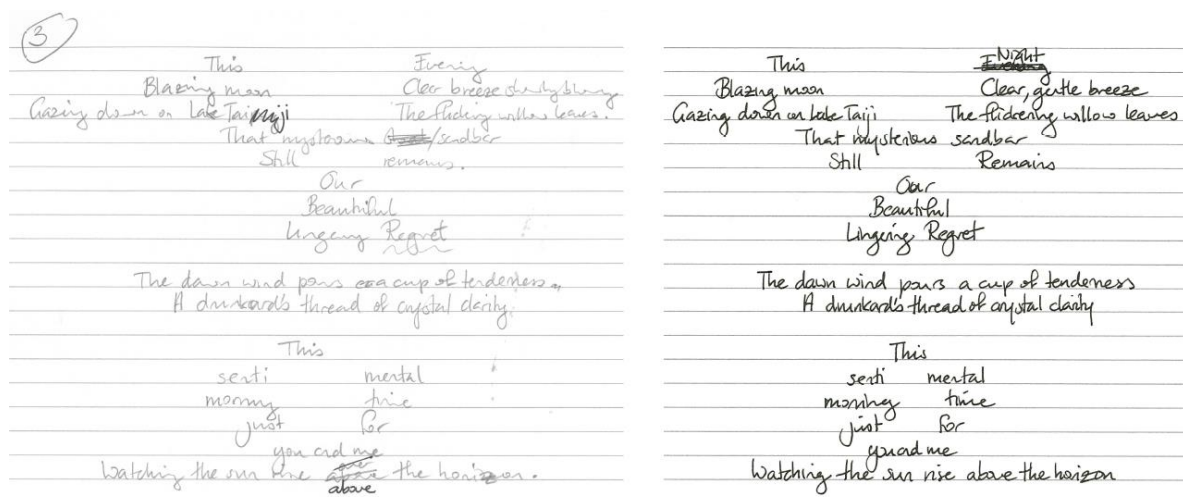 3
This Evening
Blazing moon Clear breeze
Gazing down on Lake Taiji The flickering willow leaves.
That mysterious /sandbar
Still remains.
Our
Beautiful
Lingering Regret
The dawn wind pours a cup of tenderness.
A drunkard's thread of crystal clarity.
This
senti mental
morning time
just for
you and me
Watching the sun rise above the horizon.
This Night
Blazing moon Clear, gentle breeze
Gazing down on Lake Taiji The flickering willow leaves
That mysterious sandbar
Still Remains
Our
Beautiful
Lingering Regret
The dawn wind pours a cup of tenderness
A drunkard's thread of crystal clarity
This
senti mental
morning time
just for
you and me
Watching the sun rise above the horizon